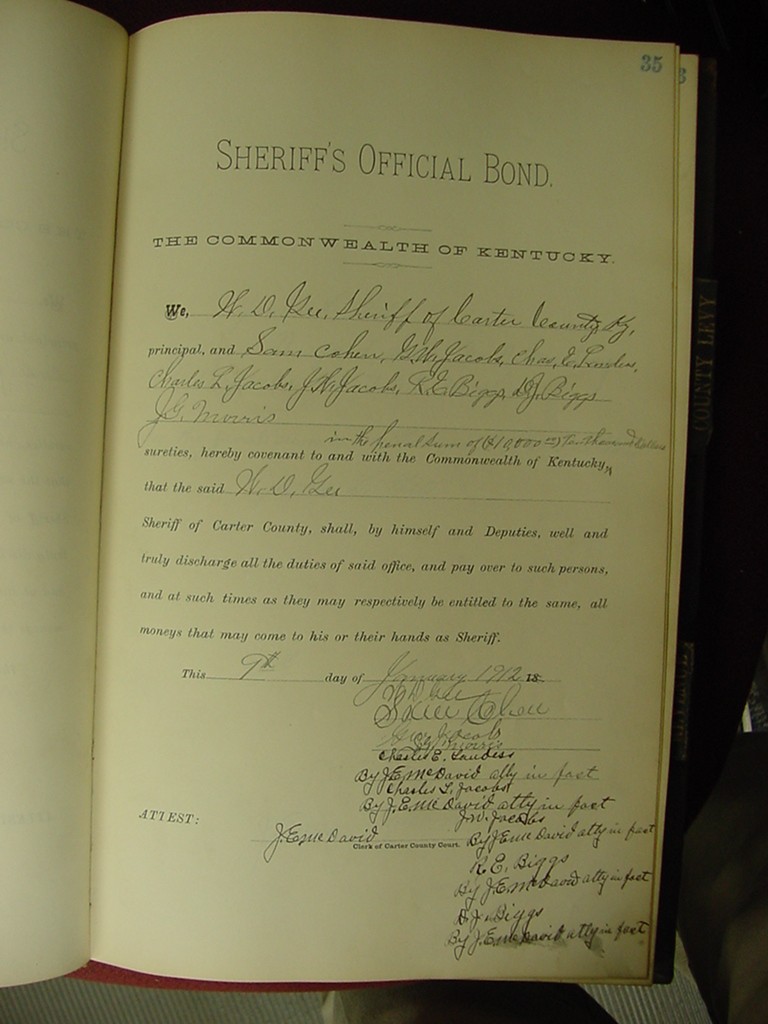 35
SHERIFF'S OFFICIAL BOND.
THE COMMONWEALTH OF KENTUCKY.
We, W. D. Gee, Sheriff of Carter County Ky,
principal, and Sam Cohen, G. W. Jacobs, Chas. E. Landess,
Charles L. Jacobs, J. W. Jacobs, R. E. Biggs, D. J. Biggs
J. G. Morris
in the penal sum of ($10,000 00) Ten thousand Dollars
sureties, hereby covenant to and with the Commonwealth of Kentucky,
that the said W. D. Gee
Sheriff of Carter County, shall, by himself and Deputies, well and
truly discharge all the duties of said office, and pay over to such persons,
and at such times as they may respectively be entitled to the same, all
moneys that may come to his or their hands as Sheriff.
This 9th day of January 1912 18
W D Gee
Sam Cohen
G W Jacobs
J G Morris
Charles E. Landess
By J. E. McDavid atty in fact
Charles L. Jacobs
By J. E. McDavid atty in fact
J. W. Jacobs
ATTEST: J. E. McDavid By J E McDavid atty in fact
Clerk of Carter County Court.
R. E. Biggs
By J. E. McDavid atty in fact
D. J. Biggs
By J. E. McDavid atty in fact
COUNTY LEVY